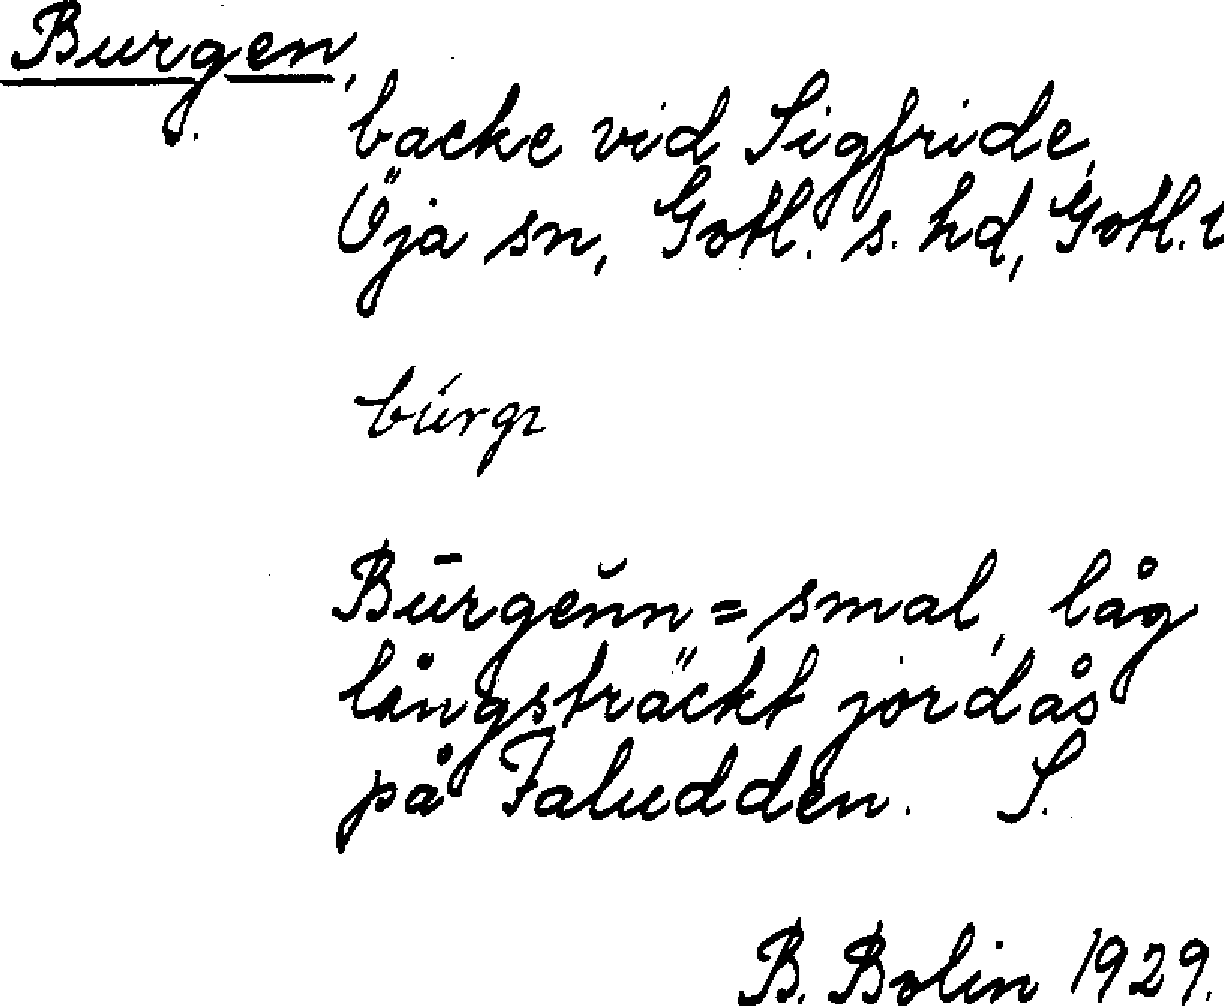 Burgen,
backe vid Sigfride,
Öja sn, Gotl. s. hd, Gotl. l
Būrgen̆n = smal, låg
långsträckt jordås
på Faludden. S.
B. Bolin 1929.